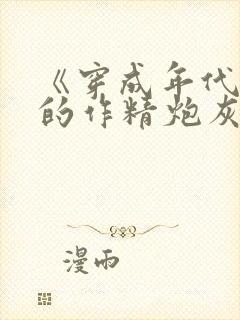 《穿成年代
的作精炮灰
漫雨